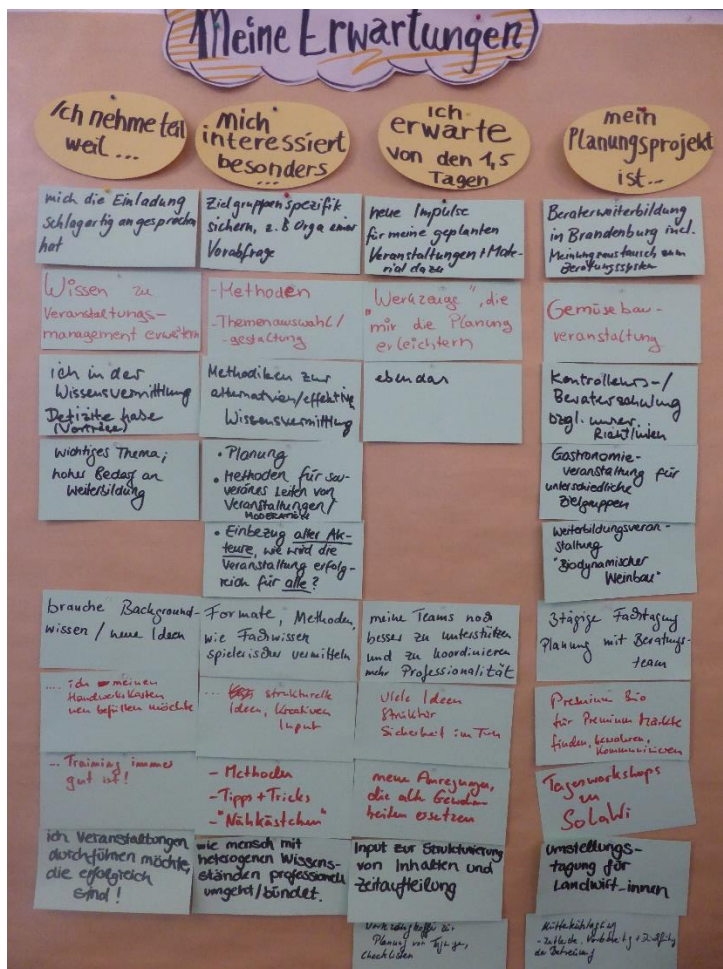 Meine Erwartungen
Ich nehme teil
weil ...
mich die Einladung
schlagartig angesprochen
hat
Wissen zu
Veranstaltungs-
management erweitern
ich in der
Wissensvermittlung
Defizite habe
(Vorträge)
wichtiges Thema;
hoher Bedarf an
Weiterbildung
brauche Background-
wissen / neue Ideen
.... ich meinen
Handwerkskasten
neu befüllen möchte
... Training immer
gut ist!
ich Veranstaltungen
durchführen möchte,
die erfolgreich
sind!
mich
interessiert
besonders
...
Zielgruppenspezifik
sichern, z.B Orga einer
Vorabfrage
- Methoden
- Themenauswahl/
gestaltung
Methodiken zur
alternativen/effektiven
Wissensvermittlung
• Planung
• Methoden für sou-
veränes Leiten von
Veranstaltungen/
MODERATION
• Einbezug aller Ak-
teure, wie wird die
Veranstaltung erfolg-
reich für alle?
Formate, Methoden,
wie Fachwissen
spielerischer vermitteln
... strukturelle
Ideen, kreativen
Input
- Methoden
- Tipps + Tricks
- "Nähkästchen"
wie mensch mit
heterogenen Wissens-
ständen professionell
umgeht/bündet.
ich
erwarte
von den 1,5
Tagen
neue Impulse
für meine geplanten
Veranstaltungen + Mate-
rial dazu
"Werkzeuge", die
mir die Planung
erleichtern
eben das
meine Teams noch
besser zu unterstützen
und zu koordinieren
mehr Professionalität
viele Ideen
Struktur
Sicherheit im Tun
neue Anregungen,
die alte Gewohn
heiten ersetzen
Input zur Strukturierung
von Inhalten und
Zeitaufteilung
Planung von
Checklisten
mein
Planungsprojekt
ist...
Beraterweiterbildung
in Brandenburg incl.
Meinungsaustausch zum
Beratungssystem
Gemüsebau-
veranstaltung
Kontrolleurs-/
Beraterschulung
bzgl. unserer
Richtlinien
Gastronomie-
veranstaltung für
unterschiedliche
Zielgruppen
Weiterbildungsveran-
staltung
"Biodynamischer
Weinbau"
3tägige Fachtagung
Planung mit Beratungs-
team
Premium Bio
für Premium Märkte
finden, bewahren,
kommunizieren
Tagesworkshops
zu
SoLaWi
Umstellungs-
tagung für
Landwirt_innen